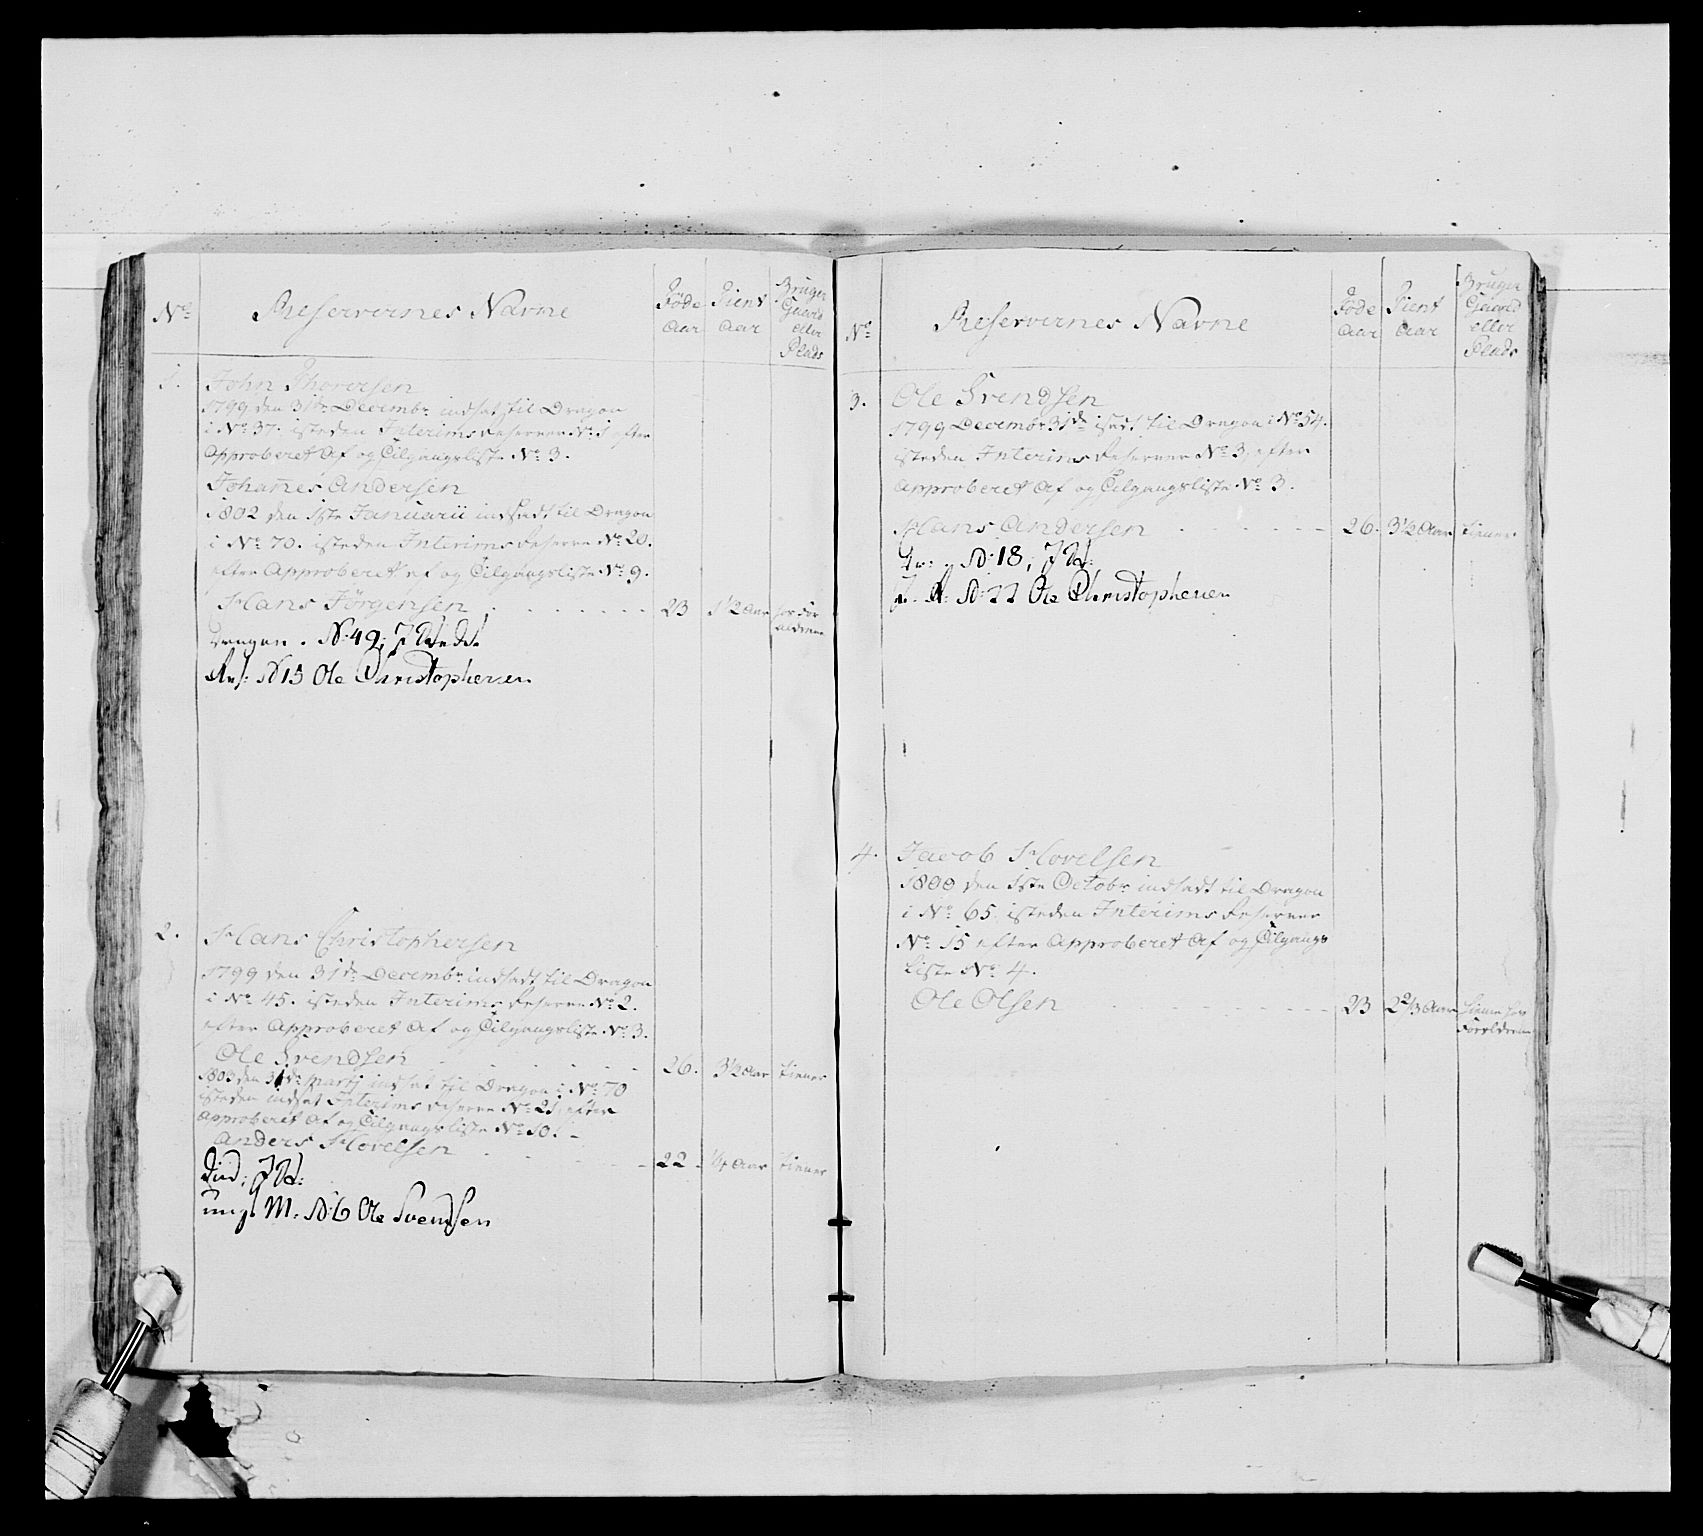 No
Reservernes Navne
Føde Aar
Tient Aar
Bruger Gaard eller Plads
1.
John Thoresen
1799 den 31te Decembr indsat til Dragon
i No 37. isteden Interims Reserver No 1 efter
Approberet Af og Tilgangsliste No 3.
Johanes Andersen
1802 den 1ste Januarii indsadt til Dragon
i No 70. isteden Interims Reserve No 20.
efter Approberet af og Tilgangsliste No 9.
Hans Jörgensen 23 1 1/2 Aar hos For
ældrene
Dragon. N: 49;
Res: N 15 Ole Christophersen
2.
Hans Christophersen
1799 den 31de Decembr indsadt til Dragon
i No 45. isteden Interims Reserve No 2.
efter Approberet Af og Tilgangsliste No 3.
Ole Svendsen 26. 3 1/2 Aar tiener
1803 den 31de Martj indsat til Dragon i No 70
isteden indsat Interims Reserve No 21, efter
Approberet Af og Tilgangsliste No 10.
Anders Hovelsen 22 1/4 Aar tiener
ung M. N: 6 Ole Svendsen
No
Reservernes Navne
Føde Aar
Tient Aar
Bruger Gaard eller Plads
3.
Ole Svendsen
1799 Decembr 31de isadt til Dragon i No 54.
isteden Interims Reserver No 3, efter
Approberet Af og Tilgangsliste No 3.
Hans Andersen 26. 3 1/2 Aar tiener
Dr: N: 18;
N: 22 Ole Christophersen
4.
Jacob Hovelsen
1800 den 1ste Octobr indsadt til Dragon
i No 65. isteden Interims Reserver
No 15 efter Approberet Af og Tilgangs
Liste No 4.
Ole Olsen 23 2 2/3 Aar tiener hos
Forældrene